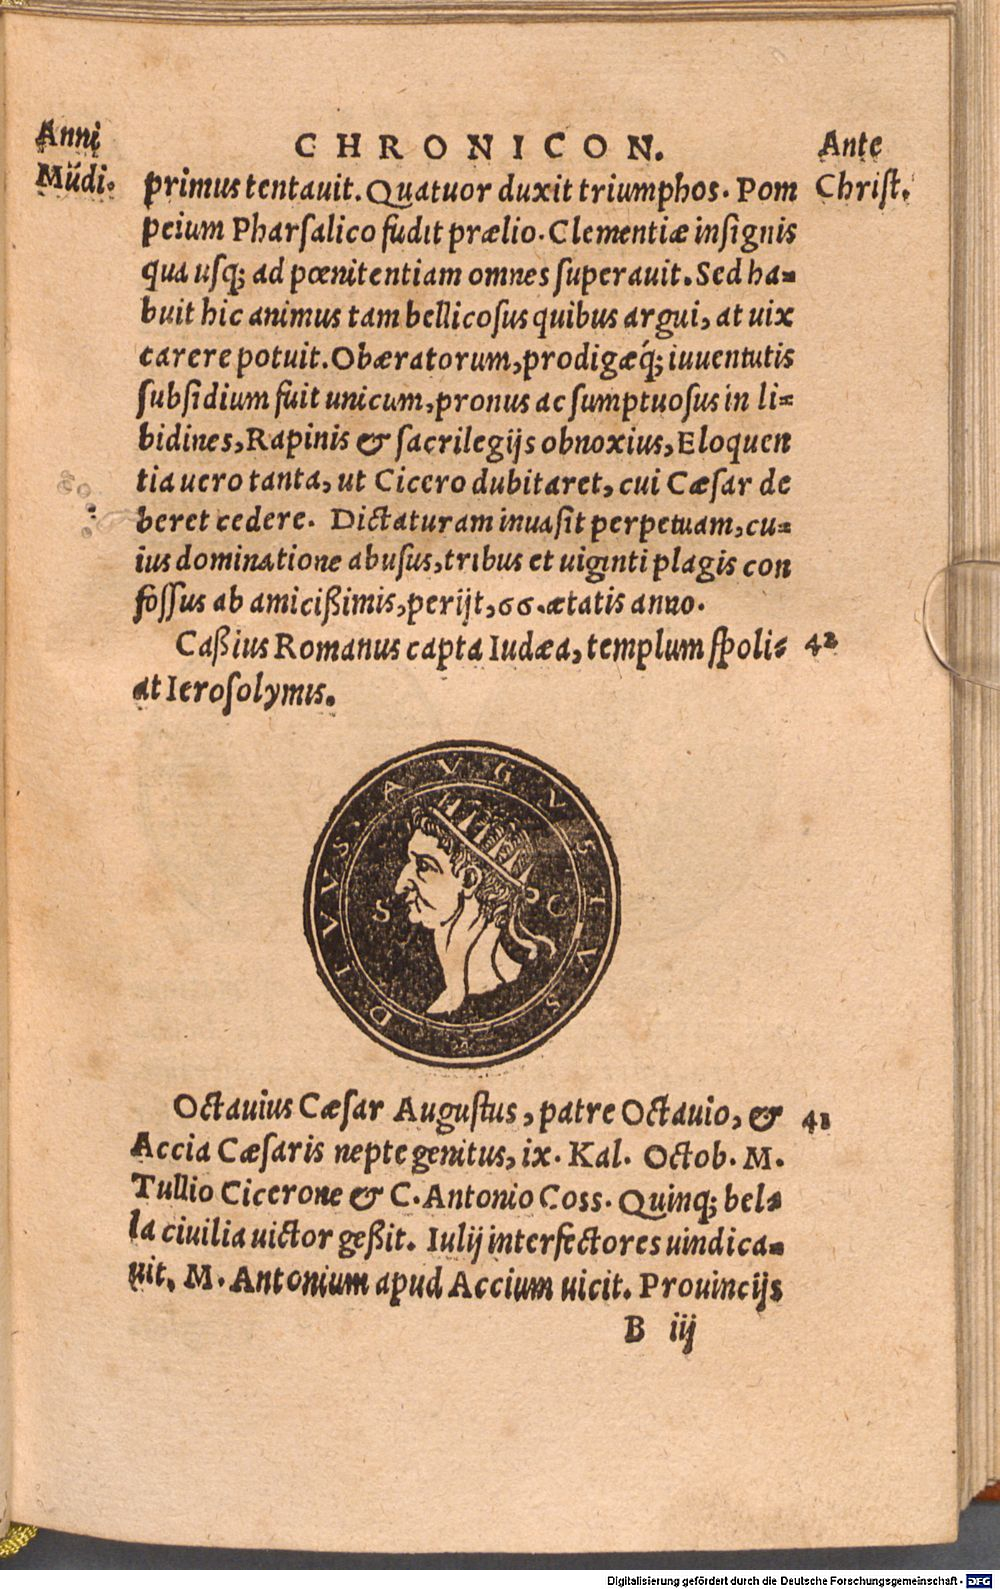 Anni
Mũdi.
CHRONICON.
Ante
Christ.
primus tentauit. Quatuor duxit triumphos. Pom
peium Pharsalico fudit prælio. Clementiæ insignis
qua usq; ad pœnitentiam omnes superauit. Sed ha-
buit hic animus tam bellicosus quibus argui, at uix
carere potuit. Obæratorum, prodigæq́; iuuentutis
subsidium fuit unicum, pronus ac sumptuosus in li-
bidines, Rapinis & sacrilegijs obnoxius, Eloquen
tia uero tanta, ut Cicero dubitaret, cui Cæsar de
beret cedere. Dictaturam inuasit perpetuam, cu-
ius dominatione abusus, tribus et uiginti plagis con
fossus ab amicißimis, perijt, 66. ætatis anno.
Caßius Romanus capta Iudæa, templum spoli- 42
at Ierosolymis.
DIVVS. AVGVSTVS
S C
Octauius Cæsar Augustus, patre Octauio, & 41
Accia Cæsaris nepte genitus, ix. Kal. Octob. M.
Tullio Cicerone & C. Antonio Coss. Quinq; bel-
la ciuilia uictor geßit. Iulij interfectores uindica-
uit, M. Antonium apud Accium uicit. Prouincijs
B iij
Digitalisierung gefördert durch die Deutsche Forschungsgemeinschaft - DFG